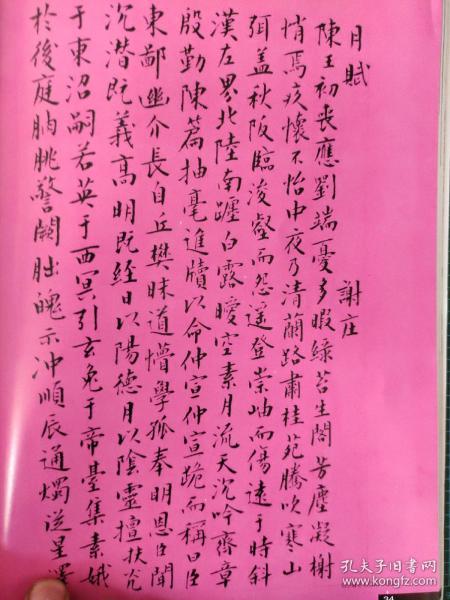 月賦 謝庄
陳王初喪應劉端憂多暇綠苔生閣芳塵凝榭
悄焉疚懷不怡中夜乃清蘭路肅桂苑騰吹寒山
弭盖秋阪臨浚壑而怨遙登崇岫而傷遠于時斜
漢左界北陸南躔白露曖空素月流天沉吟齊章
殷勤陳篇抽毫進牘以命仲宣仲宣跪而稱曰臣
東鄙幽介長自丘樊昧道懵學孤奉明恩臣聞
沉潜既義高明既經日以陽德月以陰靈擅扶光
于東沼嗣若英于西冥引玄兔于帝臺集素娥
於後庭朒脁警闕朏魄示冲順辰通燭從星澤
孔夫子旧书网
34